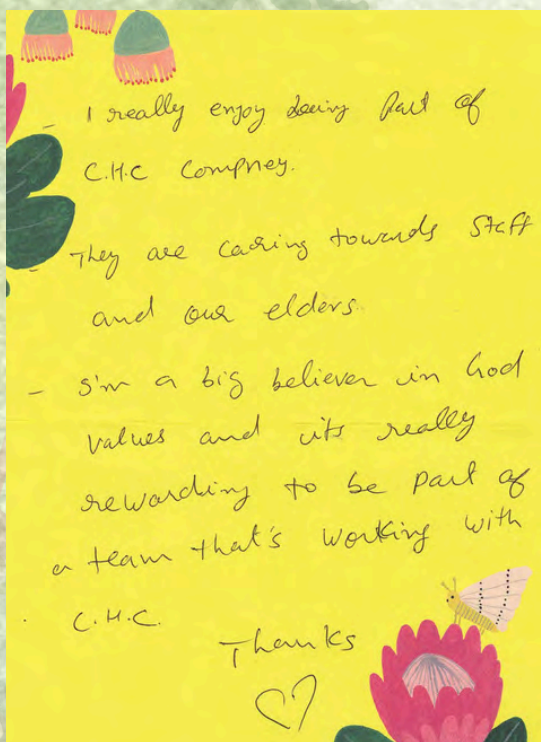 - I really enjoy being part of
C.H.C Compney.
- They are caring towards staff
and our elders.
- I'm a big believer in God
values and its really
rewarding to be part of
a team that's working with
C.H.C.
Thanks